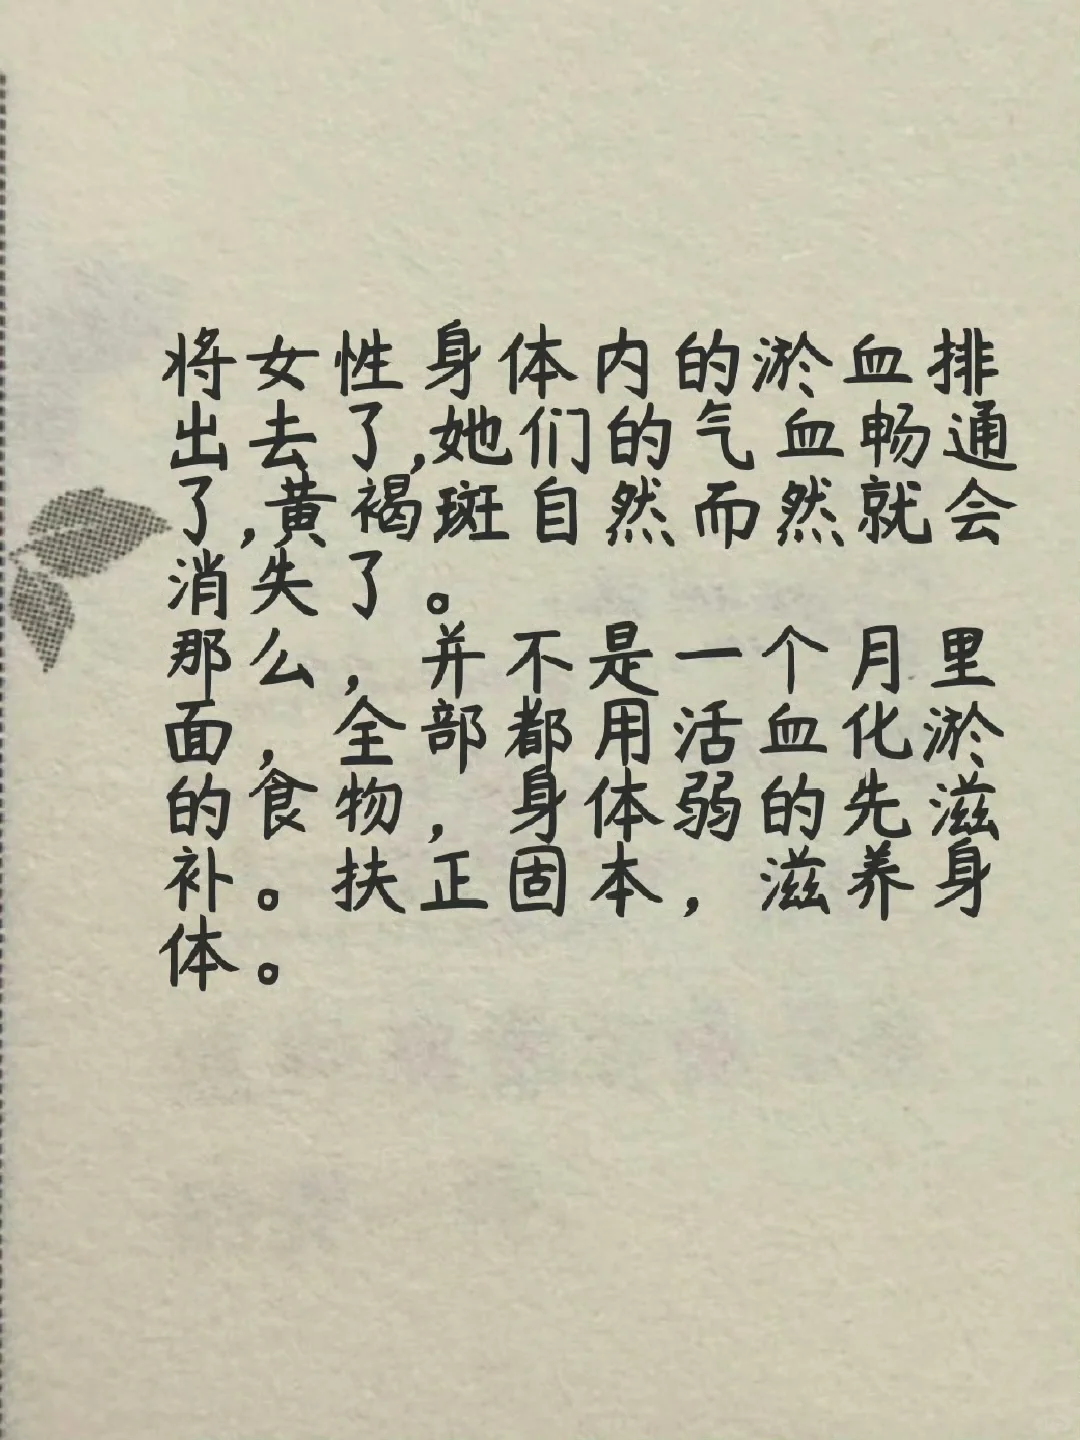 将女性身体内的淤血排
出去了,她们的气血畅通
了,黄褐斑自然而然就会
消失了。
那么，并不是一个月里
面，全部都用活血化淤
的食物，身体弱的先滋
补。扶正固本，滋养身
体。